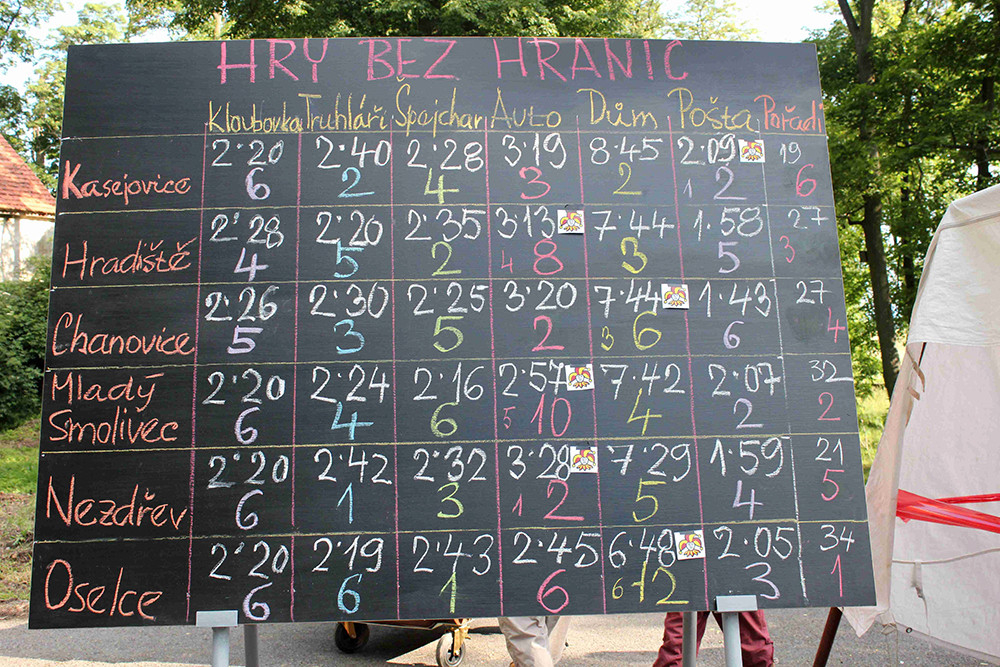 HRY BEZ HRANIC
Kloubovka Truhláři Špajchar Auto Dům Pošta Pořadí
Kasejovice 2:20 2:40 2:28 3:19 8:45 2:09 19
6 2 4 3 2 1 2 6
Hradiště 2:28 2:20 2:35 3:13 7:44 1.58 27
4 5 2 4 8 3 5 3
Chanovice 2:26 2:30 2:25 3:20 7:44 1.43 27
5 3 5 2 3 6 6 4
Mladý Smolivec 2:20 2:24 2:16 2:57 7:42 2:07 32
6 4 6 5 10 4 2 2
Nezdřev 2:20 2:42 2:32 3:28 7:29 1.59 21
6 1 3 1 2 5 4 5
Oselce 2:20 2:19 2:43 2:45 6:48 2:05 34
6 6 1 6 6 12 3 1